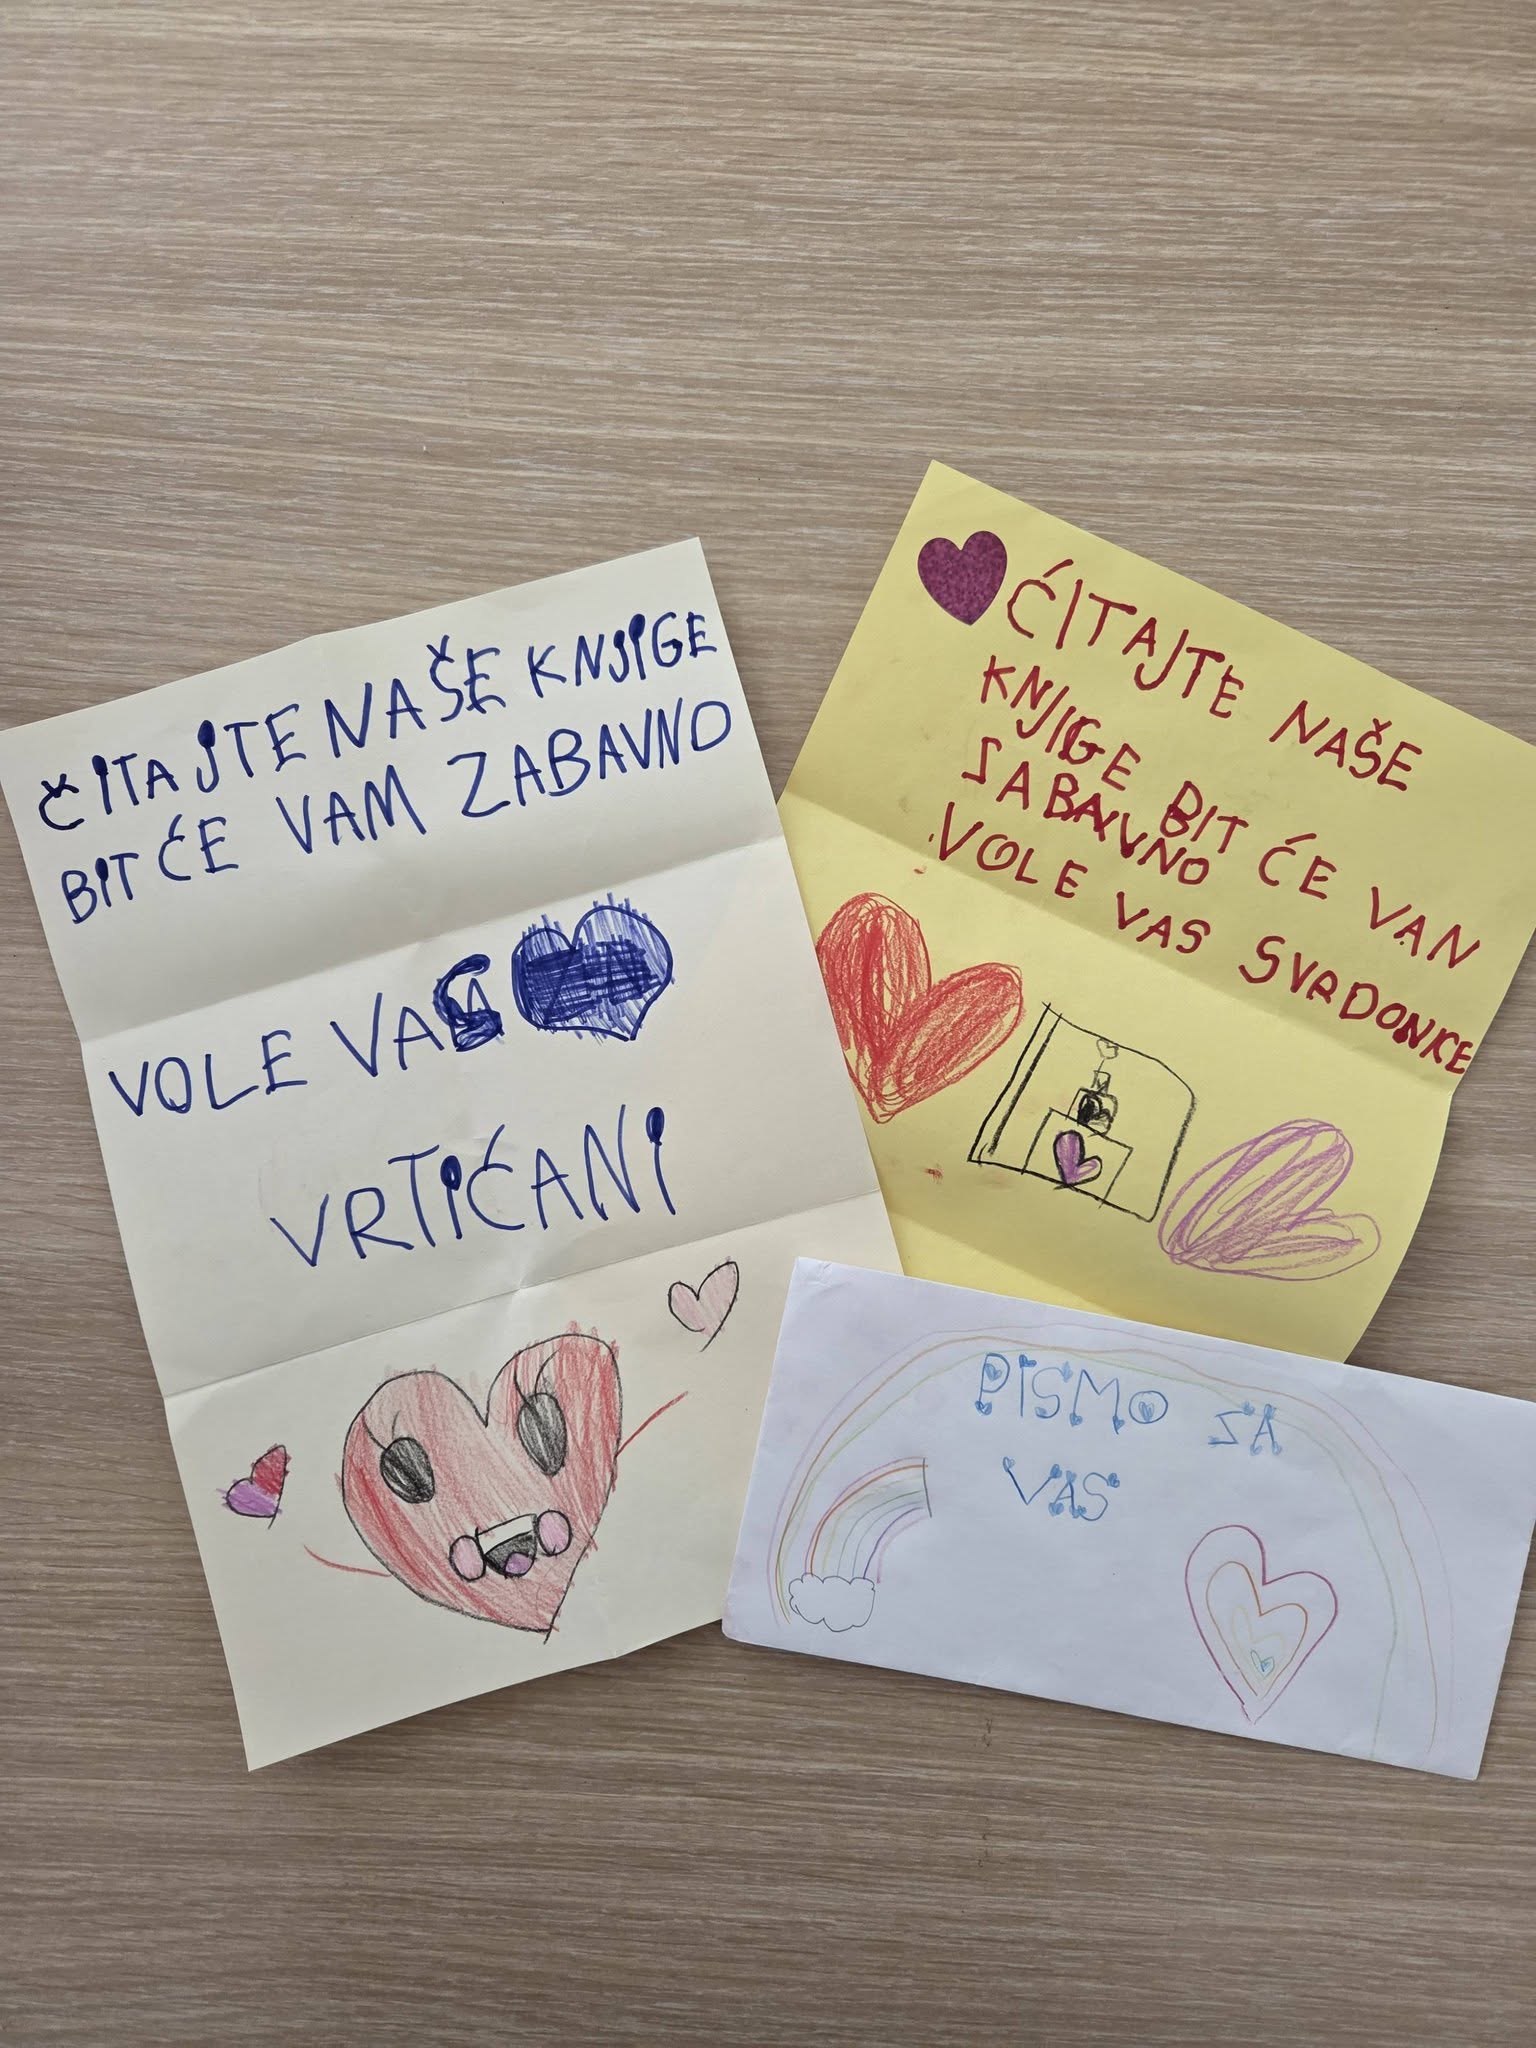 ČITAJTE NAŠE KNJIGE
BIT ĆE VAM ZABAVNO
VOLE VAS
VRTIĆANI
ĆITAJTE NAŠE
KNJIGE BIT ĆE VAN
ZABAVNO
VOLE VAS SVRDONKE
PISMO ZA
VAS